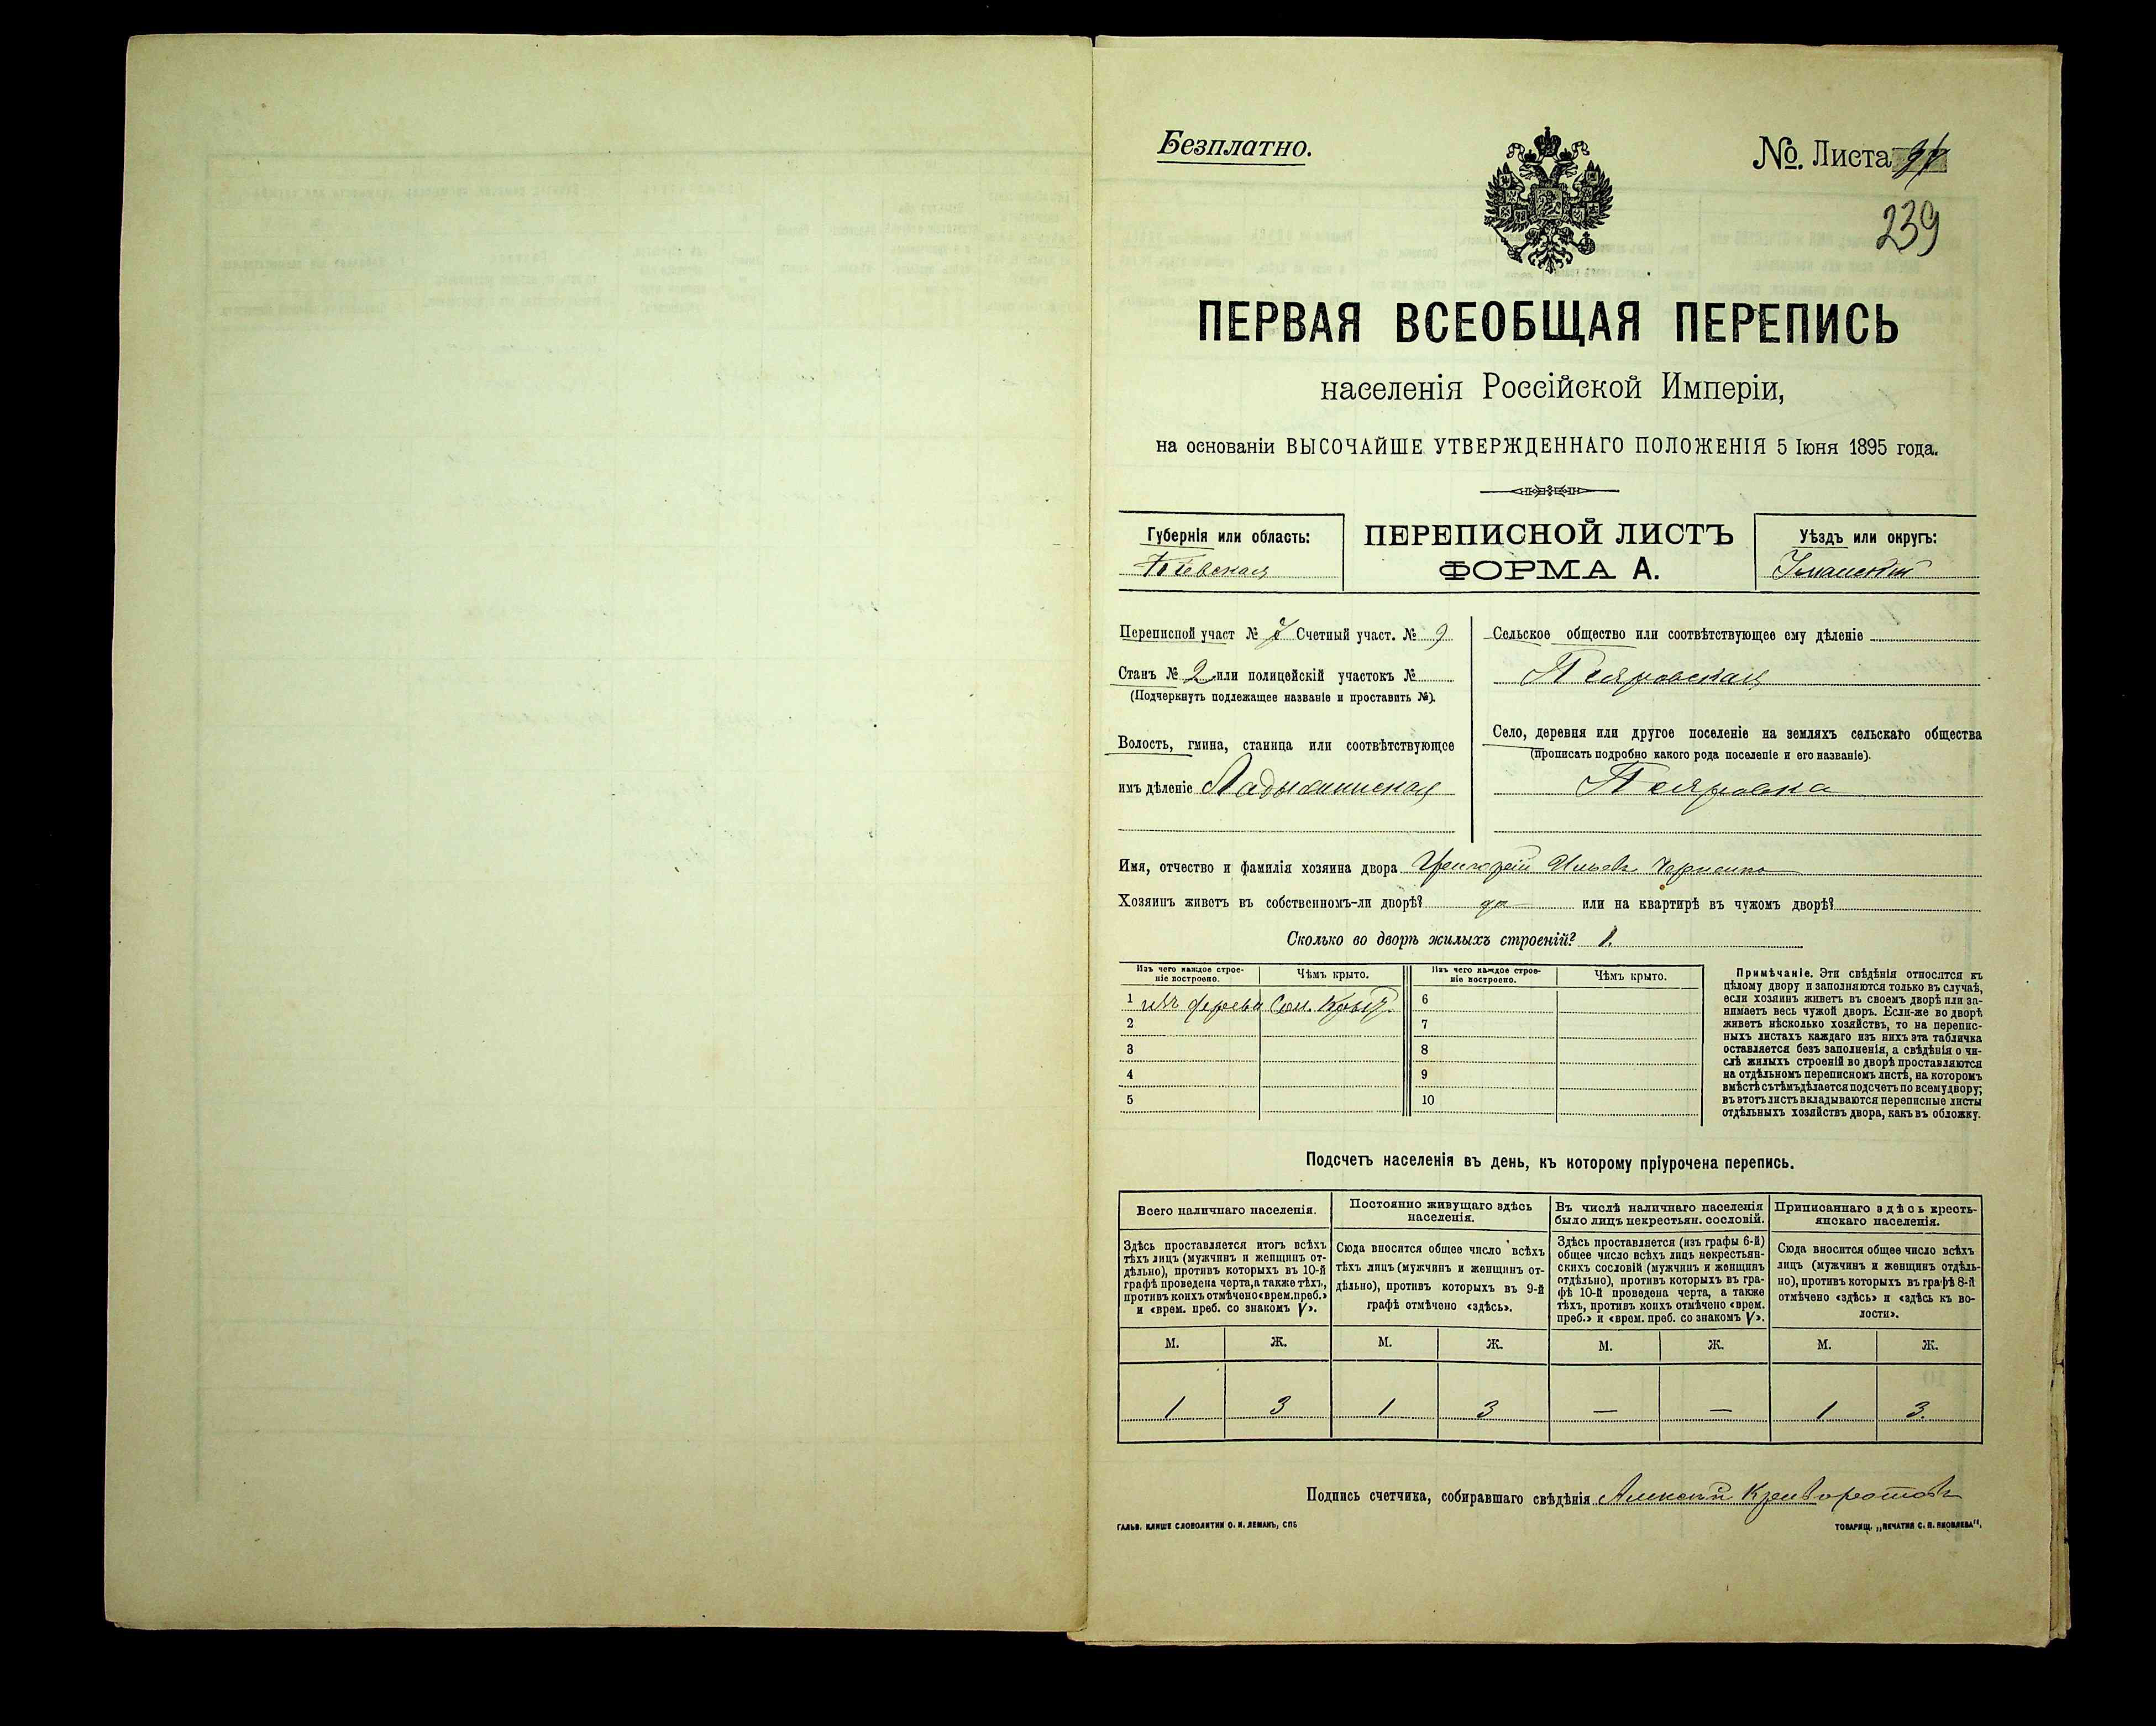 Безплатно.
№. Листа 94
239
ПЕРВАЯ ВСЕОБЩАЯ ПЕРЕПИСЬ
населенія Россійской Имперіи,
на основаніи ВЫСОЧАЙШЕ УТВЕРЖДЕННАГО ПОЛОЖЕНІЯ 5 Іюня 1895 года.
Губернія или область:
Кіевская
ПЕРЕПИСНОЙ ЛИСТЪ
ФОРМА А.
Уѣздъ или округъ:
Уманскій
Переписной участ № Счетный участ. № 9
Станъ № 2 или полицейскій участокъ №
(Подчеркнуть подлежащее названіе и проставить №).
Волость, гмина, станица или соотвѣтствующее
имъ дѣленіе Ладыжинская
Сельское общество или соотвѣтствующее ему дѣленіе
Псяровская
Село, деревня или другое поселеніе на земляхъ сельскаго общества
(прописать подробно какого рода поселеніе и его названіе).
Псяровка
Имя, отчество и фамилія хозяина двора Григорій Ильевъ Черненко
Хозяинъ живетъ въ собственномъ-ли дворѣ? да или на квартирѣ въ чужомъ дворѣ?
Сколько во дворѣ жилыхъ строеній? 1.
Изъ чего каждое строе-
ніе построено.
Чѣмъ крыто.
Изъ чего каждое строе-
ніе построено.
Чѣмъ крыто.
1 изъ дерева Сол. Крыт. 6
2 7
3 8
4 9
5 10
Примѣчаніе. Эти свѣдѣнія относятся къ
цѣлому двору и заполняются только въ случаѣ,
если хозяинъ живетъ въ своемъ дворѣ или за-
нимаетъ весь чужой дворъ. Если-же во дворѣ
живетъ нѣсколько хозяйствъ, то на перепис-
ныхъ листахъ каждаго изъ нихъ эта табличка
оставляется безъ заполненія, а свѣдѣнія о чи-
слѣ жилыхъ строеній во дворѣ проставляются
на отдѣльномъ переписномъ листѣ, на которомъ
вмѣстѣ съ тѣмъ дѣлается подсчетъ по всему двору;
въ этотъ листъ вкладываются переписные листы
отдѣльныхъ хозяйствъ двора, какъ въ обложку.
Подсчетъ населенія въ день, къ которому пріурочена перепись.
Всего наличнаго населенія.
Здѣсь проставляется итогъ всѣхъ
тѣхъ лицъ (мужчинъ и женщинъ от-
дѣльно), противъ которыхъ въ 10-й
графѣ проведена черта, а также тѣхъ,
противъ коихъ отмѣчено «врем. преб.»
и «врем. преб. со знакомъ V».
Постоянно живущаго здѣсь
населенія.
Сюда вносится общее число всѣхъ
тѣхъ лицъ (мужчинъ и женщинъ от-
дѣльно), противъ которыхъ въ 9-й
графѣ отмѣчено «здѣсь».
Въ числѣ наличнаго населенія
было лицъ некрестьян. сословій.
Здѣсь проставляется (изъ графы 6-й)
общее число всѣхъ лицъ некрестьян-
скихъ сословій (мужчинъ и женщинъ
отдѣльно), противъ которыхъ въ гра-
фѣ 10-й проведена черта, а также
тѣхъ, противъ коихъ отмѣчено «врем.
преб.» и «врем. преб. со знакомъ V».
Приписаннаго здѣсь кресть-
янскаго населенія.
Сюда вносится общее число всѣхъ
лицъ (мужчинъ и женщинъ отдѣль-
но), противъ которыхъ въ графѣ 8-й
отмѣчено «здѣсь» и «здѣсь къ во-
лости».
М. Ж. М. Ж. М. Ж. М. Ж.
1 3 1 3 — — 1 3.
Подпись счетчика, собиравшаго свѣдѣнія Алексѣй
ГАЛЬВ. КЛИШЕ СЛОВОЛИТНИ О. И. ЛЕМАНЪ, СПБ
ТОВАРИЩ. „ПЕЧАТНЯ С. П. ЯКОВЛЕВА".